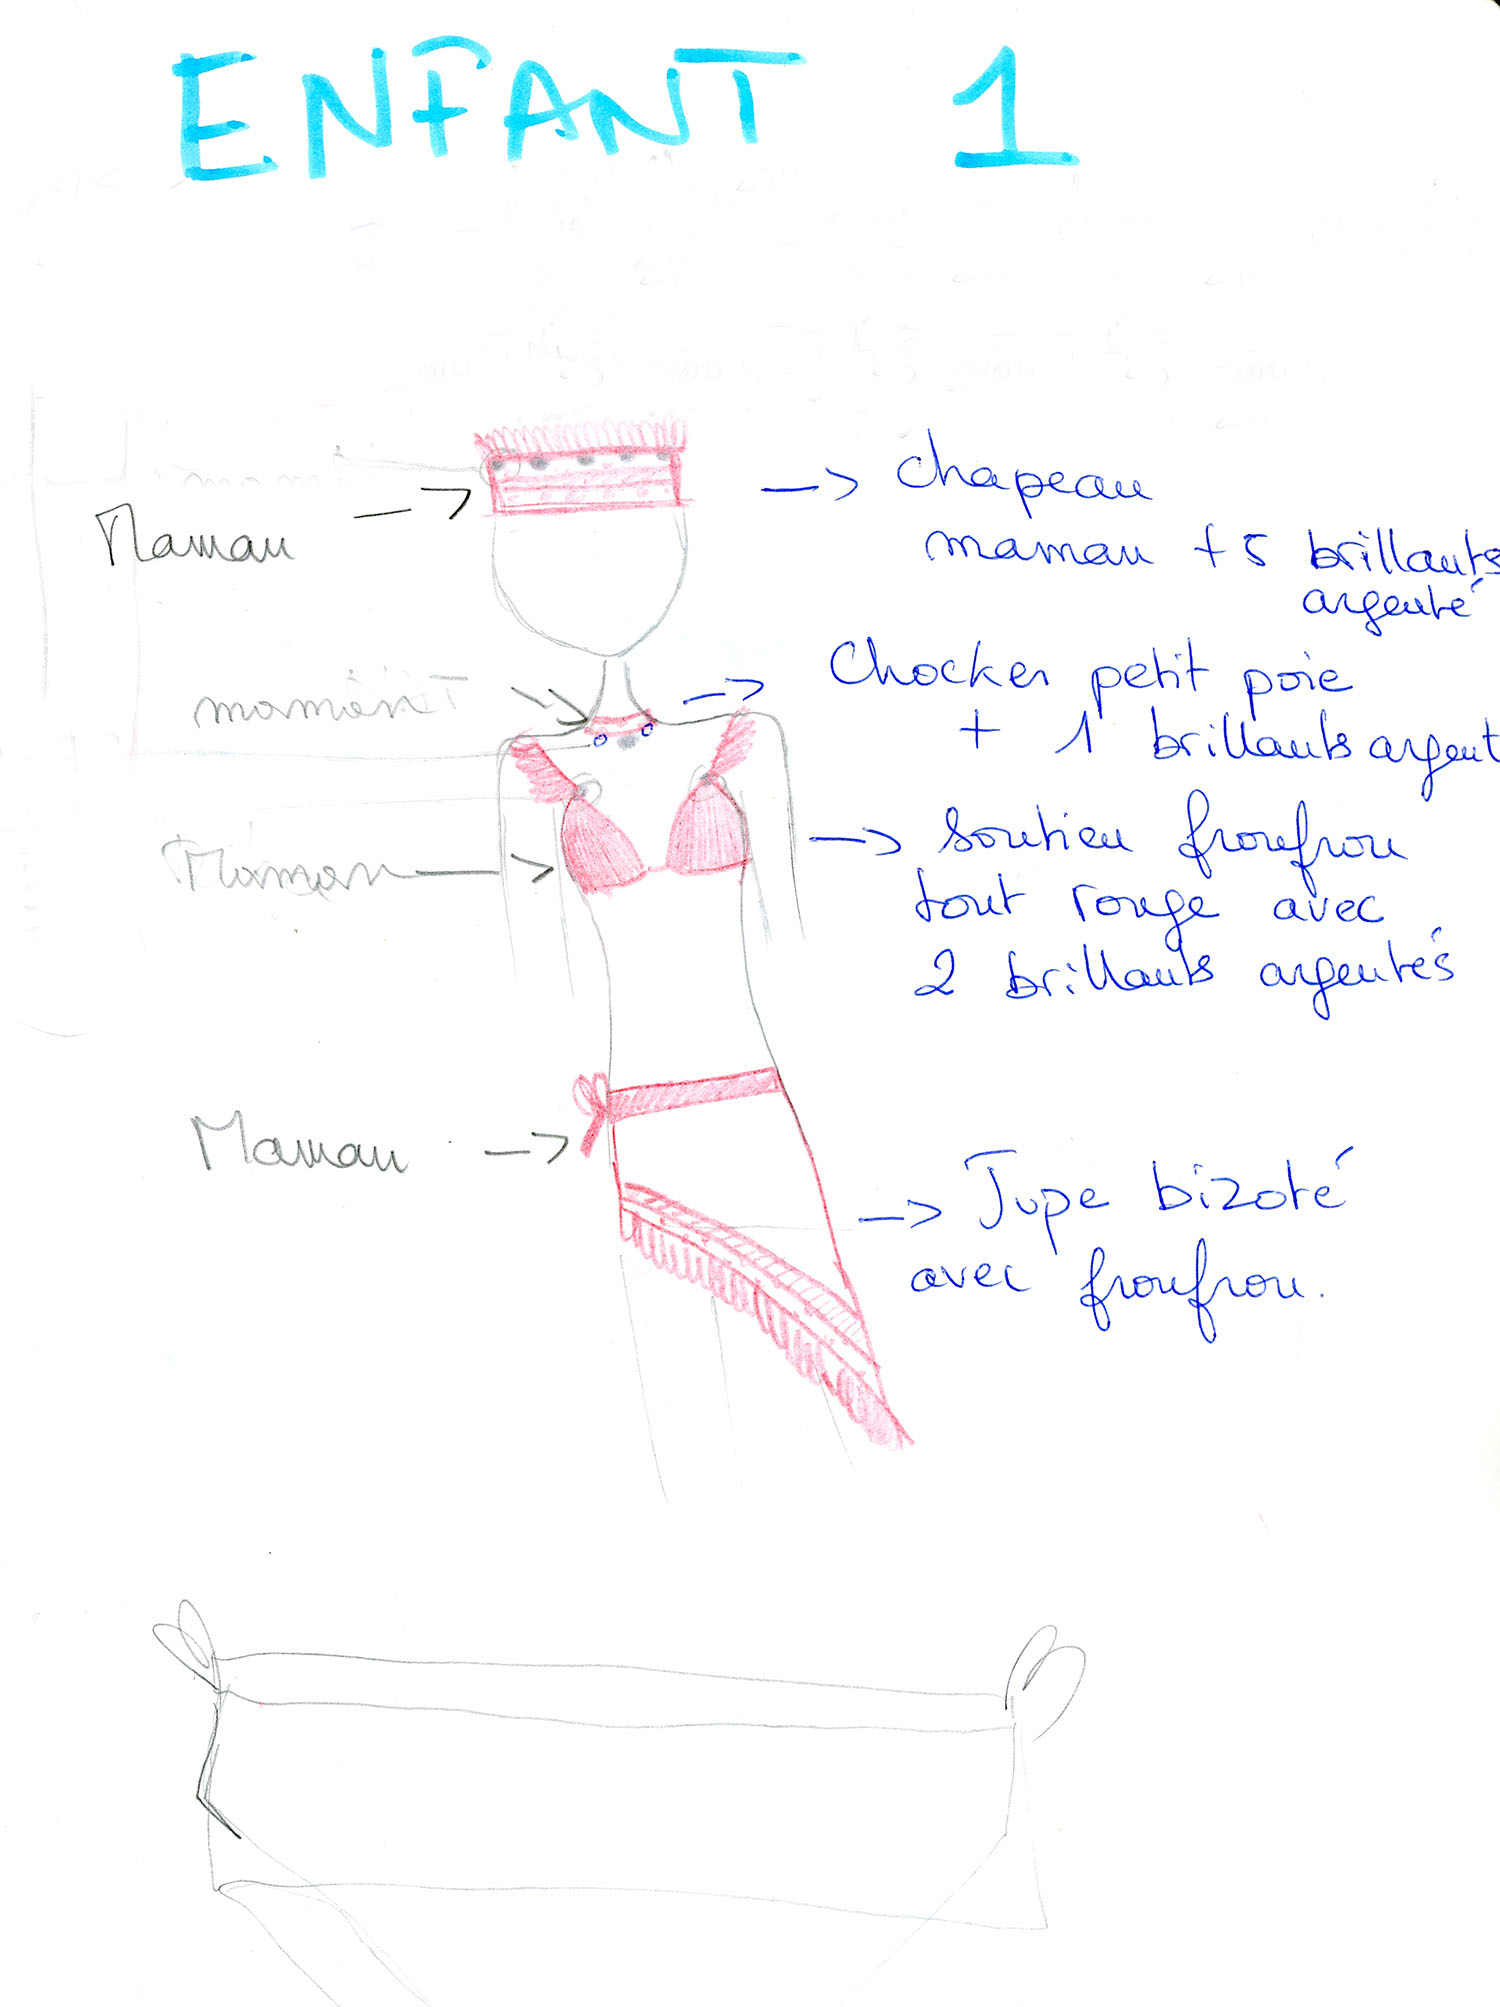 ENFANT 1
Maman
chapeau
maman + 5 brillants
argenté
Chocker petit poie
+ 1 brillants argent
Maman
soutien froufrou
tout rouge avec
2 brillants argentés
Maman
Jupe bizoté
avec froufrou.